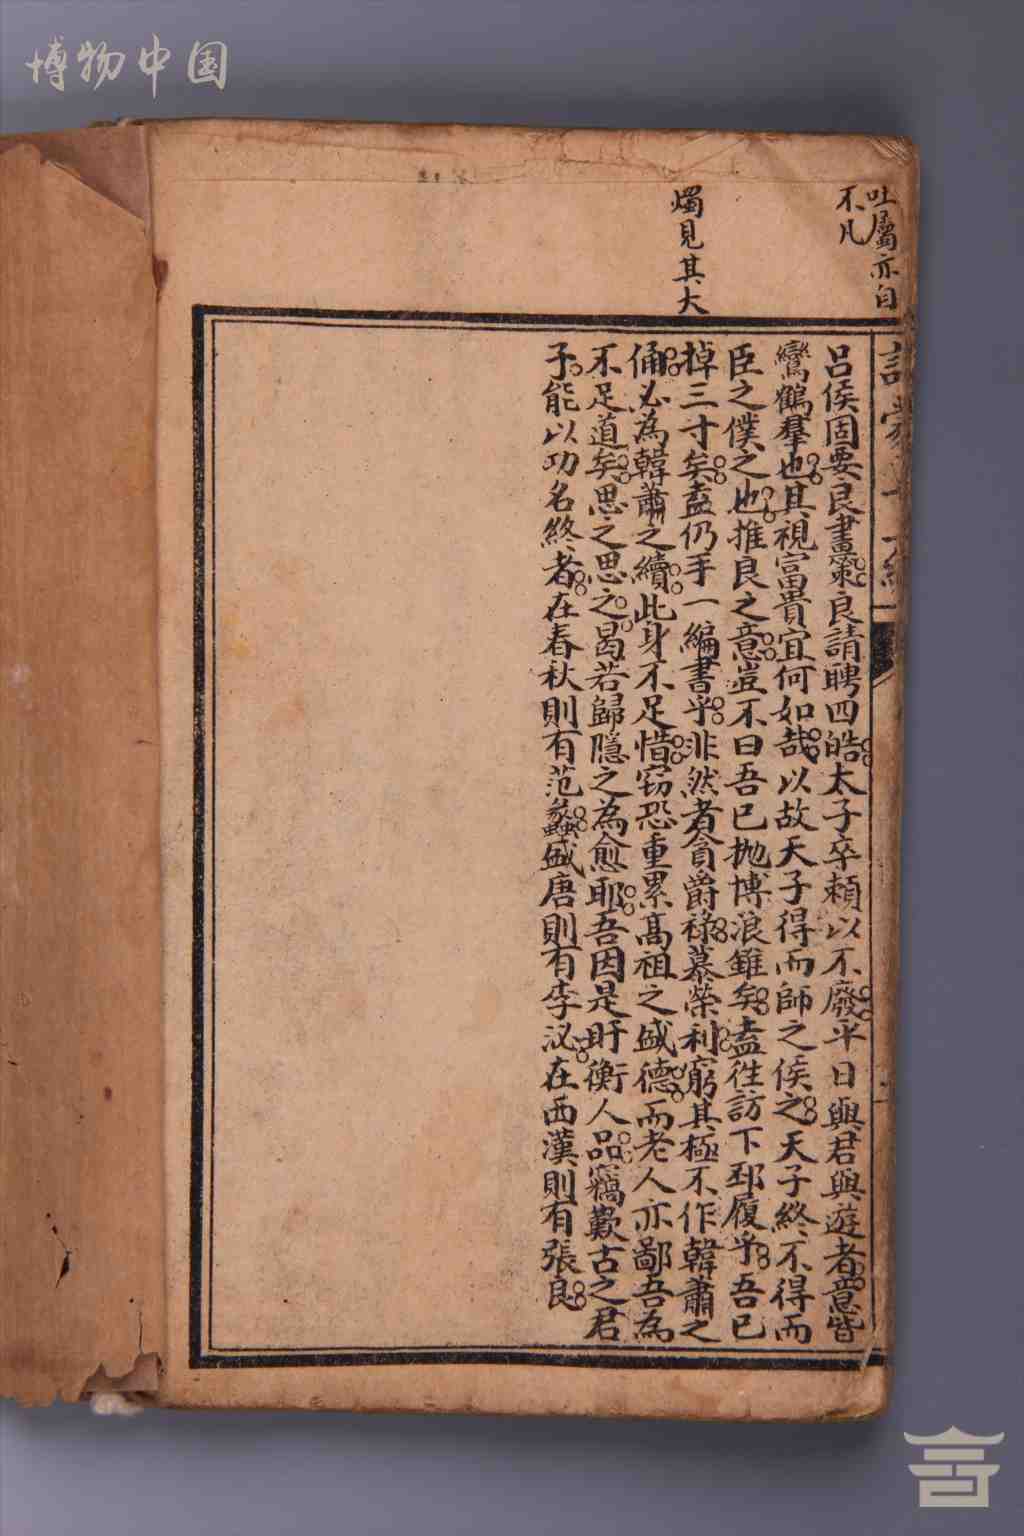 博物中国
吐屬亦自
不凡
燭見其大
呂侯固要良畫策良請聘四皓太子卒頼以不廢平日與君與遊者意皆
鸞鶴羣也其視富貴宜何如哉以故天子得而師之侯之天子終不得而
臣之僕之也推良之意豈不曰吾已抛博浪錐矣盍往訪下邳履乎吾已
掉三寸矣盍仍手一編書乎非然者貪爵祿慕榮利窮其極不作韓蕭之
俑必為韓蕭之續此身不足惜窃恐重累高祖之盛德而老人亦鄙吾為
不足道矣思之思之曷若歸隱之為愈耶吾因是盱衡人品竊歎古之君
子能以功名終者在春秋則有范蠡盛唐則有李泌在西漢則有張良